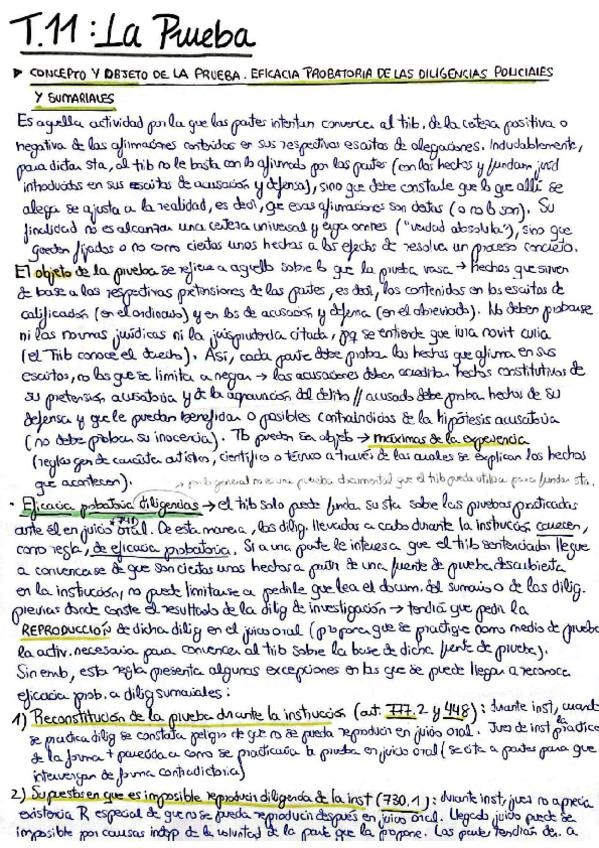 T.11: La Prueba
▶ CONCEPTO Y OBJETO DE LA PRUEBA. EFICACIA PROBATORIA DE LAS DILIGENCIAS POLICIALES
Y SUMARIALES
Es aquella actividad por la que las partes intentan convencer al trib. de la certeza positiva o
negativa de las afirmaciones contenidas en sus respectivos escritos de alegaciones. Indudablemente,
para dictar sta, al trib no le basta con lo afirmado por las partes (con los hechos y fundam juríd
introducidos en sus escritos de acusación y defensa), sino que debe constarle que lo que allí se
alega se ajusta a la realidad, es decir, que esas afirmaciones son datos (o no lo son). Su
finalidad no es alcanzar una certeza universal y erga omnes ("verdad absoluta"), sino que
queden fijados o no como ciertos unos hechos a los efectos de resolver un proceso concreto.
El objeto de la prueba se refiere a aquello sobre lo que la prueba versa → hechos que sirven
de base a las respectivas pretensiones de las partes, es decir, los contenidos en los escritos de
calificación (en el ordinario) y en los de acusación y defensa (en el abreviado). No deben probarse
ni las normas jurídicas ni la jurisprudencia citada, pq se entiende que iura novit curia
(el Trib conoce el derecho). Así, cada parte debe probar los hechos que afirma en sus
escritos, no los que se limita a negar → las acusaciones deben acreditar hechos constitutivos de
su pretensión acusatoria y de la agravación del delito // acusado debe probar hechos de su
defensa y que le puedan beneficiar o posibles contraindicios de la hipótesis acusatoria
(no debe probar su inocencia). Tb pueden ser objeto → máximas de la experiencia
(reglas gen de carácter artístico, científico o técnico a través de las cuales se explican los hechos
que acontecen).
→ por lo general no es una prueba documental que el trib pueda utilizar para fundar sta.
· Eficacia probatoria diligencias → el trib solo puede fundar su sta sobre las pruebas practicadas
ante él en juicio oral. De esta manera, las dilig. llevadas a cabo durante la instrucción carecen,
como regla, de eficacia probatoria. Si a una parte le interesa que el trib sentenciador llegue
a convencerse de que son ciertos unos hechos a partir de una fuente de prueba descubierta
en la instrucción, no puede limitarse a pedirle que lea el docum. del sumario o de las dilig.
previas donde conste el resultado de la dilig de investigación → tendrá que pedir la
REPRODUCCIÓN de dicha dilig en el juicio oral (proponer que se practique como medio de prueba
la activ. necesaria para convencer al trib sobre la base de dicha fuente de prueba).
Sin emb, esta regla presenta algunas excepciones en las que se puede llegar a reconocer
eficacia prob. a dilig sumariales:
1) Reconstitución de la prueba durante la instrucción (art. 777.2 y 448): durante inst, cuando
se practica dilig se constata peligro de que no se pueda reproducir en juicio oral. Juez de inst practica
de la forma + parecida a como se practicaría la prueba en juicio oral (se cita a partes para que
intervengan de forma contradictoria)
2) Supuestos en que es imposible reproducir diligencia de la inst (730.1): durante inst, juez no aprecia
existencia R especial de que no se pueda reproducir después en juicio oral. Llegado juicio puede ser
imposible por causas indep de la voluntad de la parte que la propone. Las partes tendrían